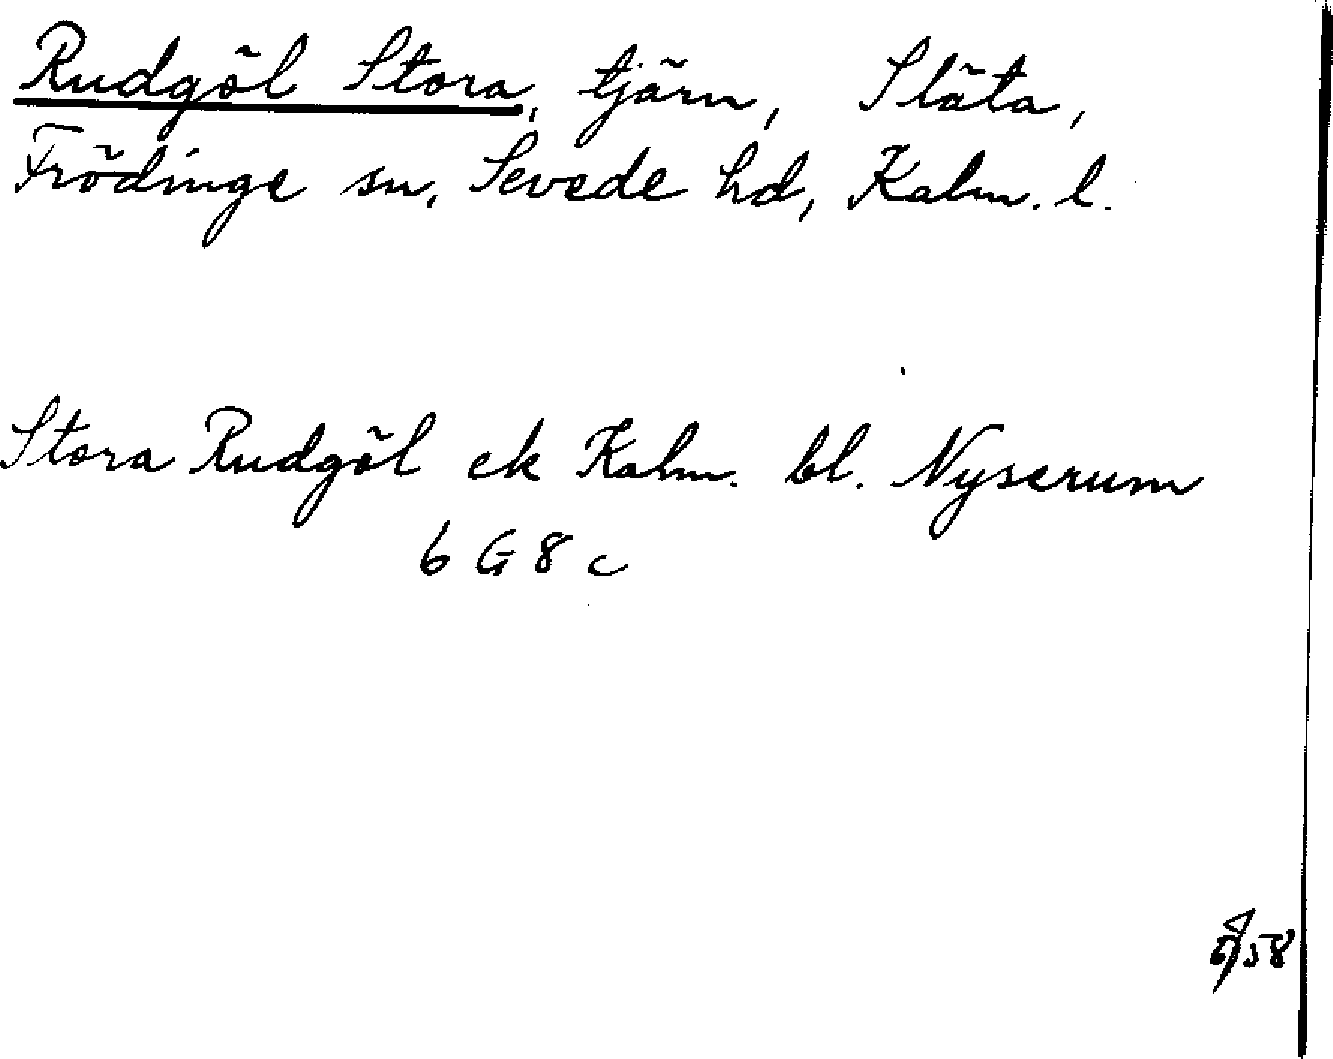 Rudgöl Stora, tjärn, Släta,
Frödinge sn, Sevede hd, Kalm. l.
Stora Rudgöl ek Kalm. bl. Nyserum
6 G 8 c
58